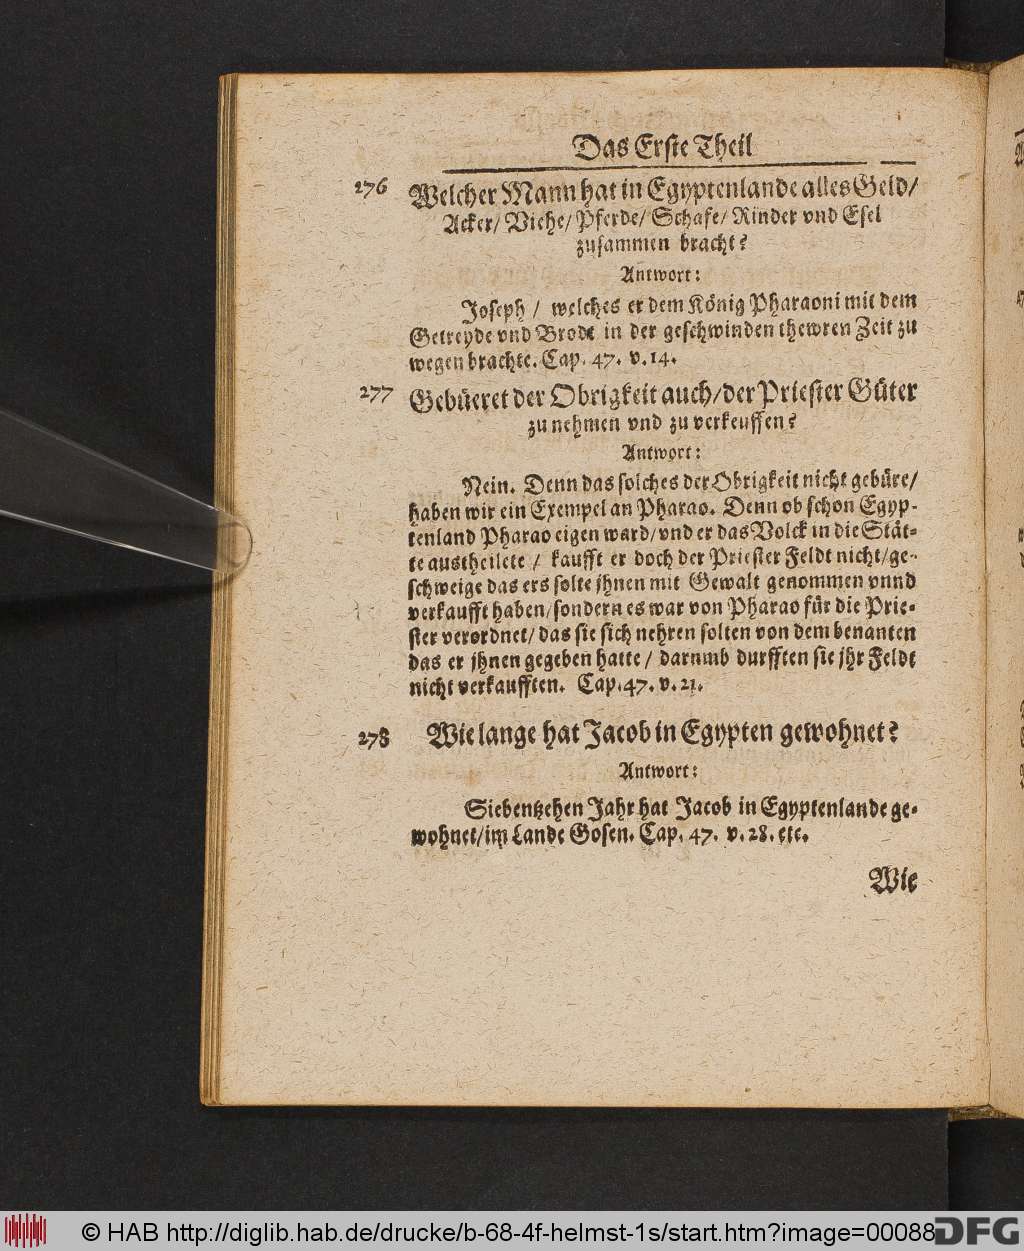 Das Erste Theil
276 Welcher Mann hat in Egyptenlande alles Geld/
Acker/ Viehe/ Pferde/ Schafe/ Rinder vnd Esel
zusammen bracht?
Antwort:
Joseph / welches er dem König Pharaoni mit dem
Getreyde vnd Brodt in der geschwinden thewren Zeit zu
wegen brachte. Cap. 47. v. 14.
277 Gebüeret der Obrigkeit auch/ der Priester Güter
zu nehmen vnd zu verkeuffen?
Antwort:
Nein. Denn das solches der Obrigkeit nicht gebüre/
haben wir ein Exempel an Pharao. Denn ob schon Egyp-
tenland Pharao eigen ward/ vnd er das Volck in die Stät-
te austheilete / kaufft er doch der Priester Feldt nicht/ ge-
schweige das ers solte jhnen mit Gewalt genommen vnnd
verkaufft haben/ sondern es war von Pharao für die Prie-
ster verordnet/ das sie sich nehren solten von dem benanten
das er jhnen gegeben hatte / darumb durfften sie jhr Feldt
nicht verkaufften. Cap. 47. v. 21.
278 Wie lange hat Jacob in Egypten gewohnet?
Antwort:
Siebentzehen Jahr hat Jacob in Egyptenlande ge-
wohnet/ im Lande Gosen. Cap. 47. v. 28. etc.
Wie
© HAB http://diglib.hab.de/drucke/b-68-4f-helmst-1s/start.htm?image=00088
DFG